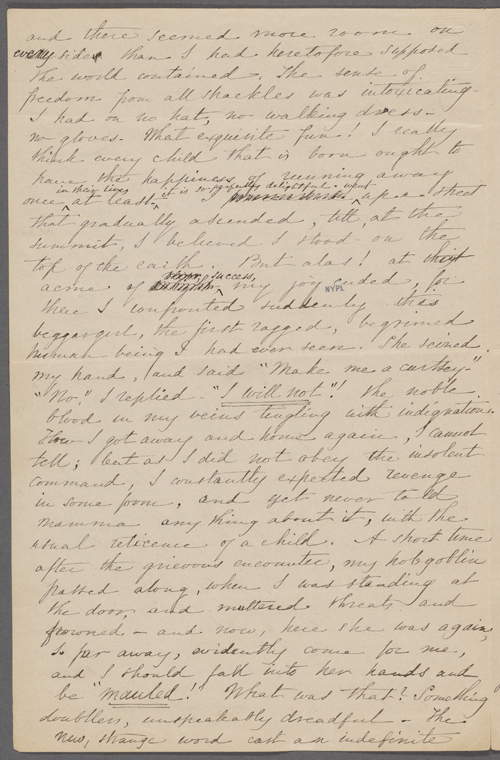 and there seemed more room on
every side than I had heretofore supposed
the world contained. The sense of
freedom from all shackles was intoxicating.
I had on no hat, no walking dress-
no gloves. What exquisite fun! I really
think every child that is born ought to
have the happiness of running away
in their lives it is so perfectly delightful. went
once at least. I up a street
that gradually ascended, till, at the
summit, I believed I stood on the
top of the earth. But alas! at
success,
acme of my joy ended, for
NYPL
there I confronted suddenly this
beggargirl, the first ragged, begrimed
human being I had ever seen. She seized
my hand, and said "Make me a curtsey."
"No," I replied - "I will not"! the noble
blood in my veins tingling with indignation.
How I got away and home again, I cannot
tell; but as I did not obey the insolent
command, I constantly expected revenge
in some form, and yet never told
mamma any thing about it, with the
usual reticence of a child. A short time
after the grievous encounter, my hobgoblin
passed along, when I was standing at
the door, and muttered threats and
frowned - and now, here she was again,
so far away, evidently come for me,
and I should fall into her hands and
be "mauled!" What was that? Something
doubtless, unspeakably dreadful - The
new, strange word cast an indefinite